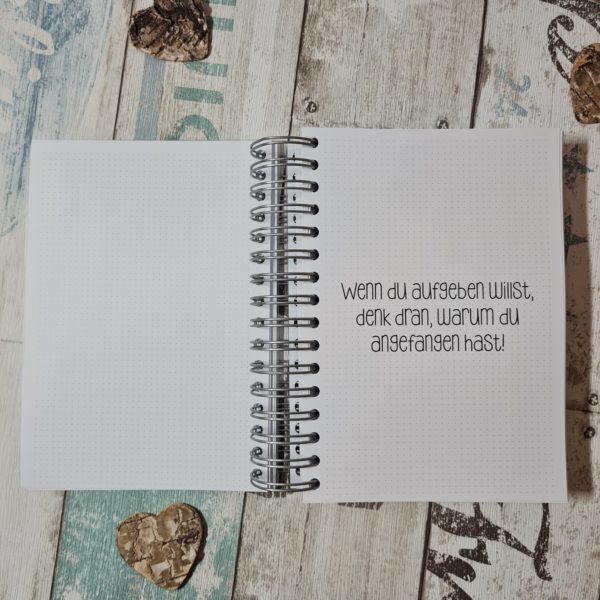 Wenn du aufgeben willst,
denk dran, warum du
angefangen hast!
24